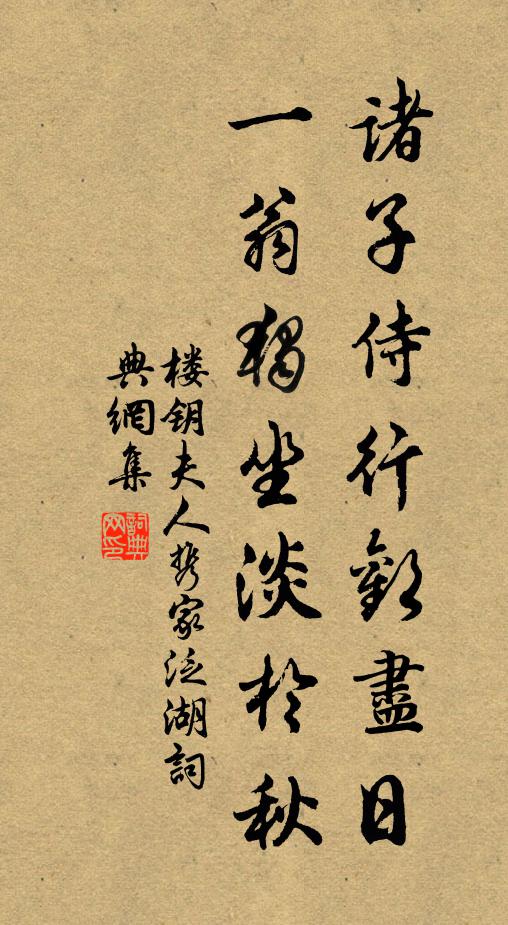 諸子侍行歡盡日
一翁獨坐淡於秋
楼钥夫人携家泛湖詞
典網集
詞典
网印